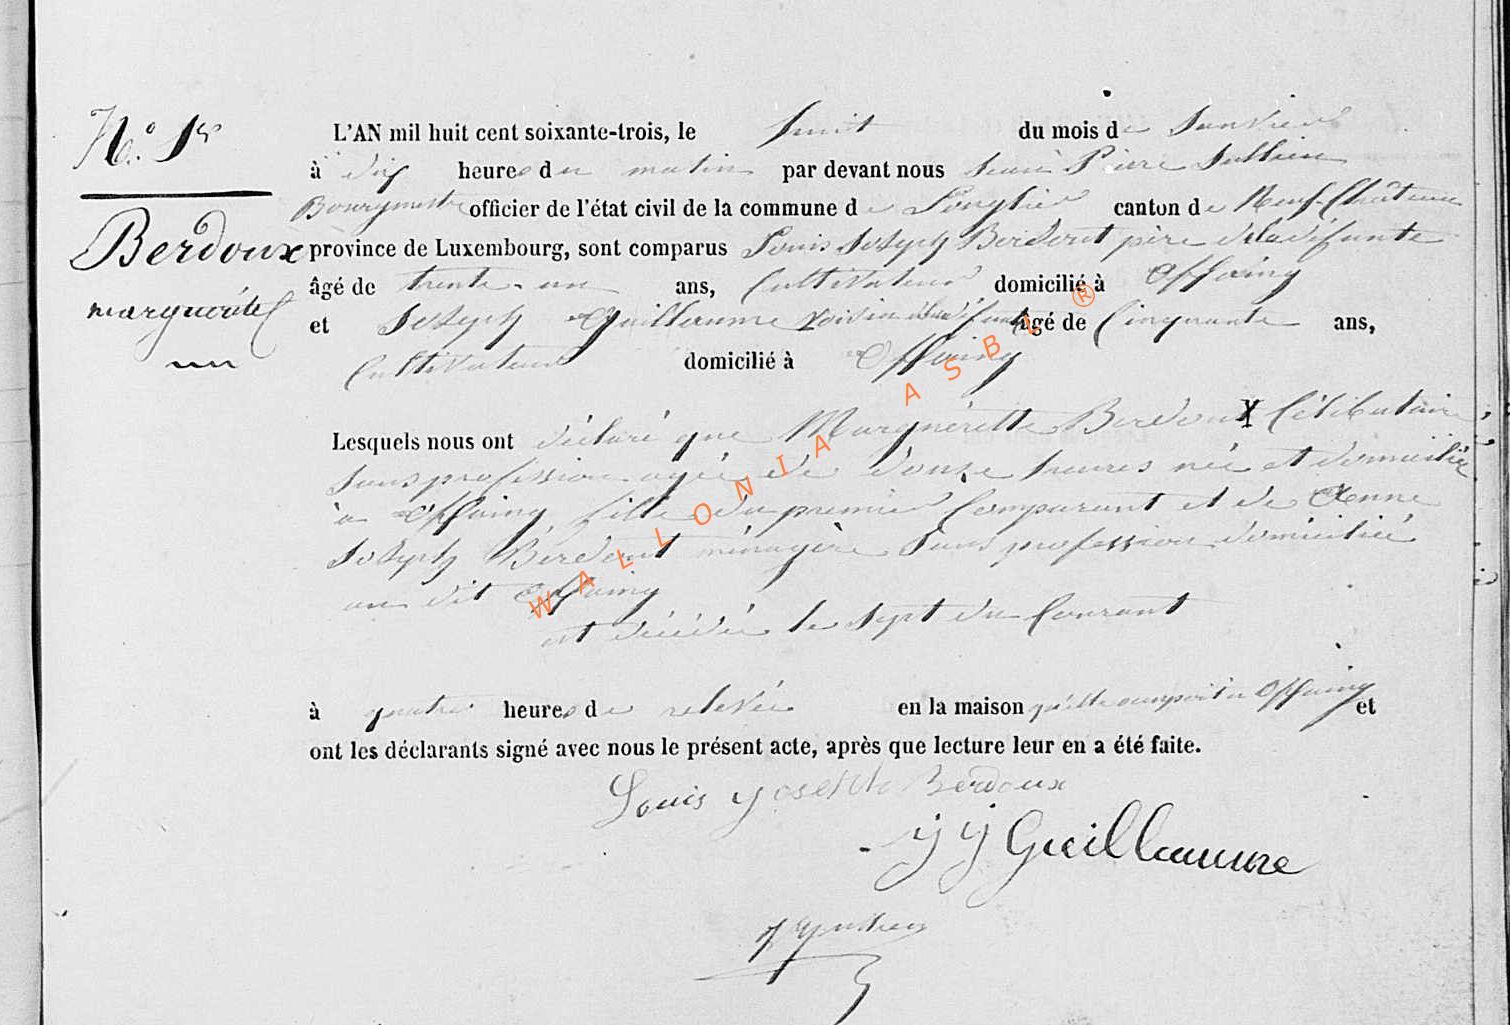 N.° 1er
Berdoux
marguerite
L'AN mil huit cent soixante-trois, le huit du mois de Janvier
à dix heures du matin par devant nous Jean Pierre Jullien
Bourgmestre officier de l'état civil de la commune de Longlier canton de Neuf-Château
province de Luxembourg, sont comparus Louis Joseph Berdout père de la défunte
âgé de trente-un ans, Cultivateur domicilié à Offaing
et Joseph Guillaume voisin de la défunte âgé de Cinquante ans,
Cultivateur domicilié à Offaing
Lesquels nous ont déclaré que Marguérette Berdoux Célibataire
sans profession agée de douze heures née et domiciliée
à Offaing, fille du premier Comparant et de Anne
Joseph Berdout ménagère sans profession domiciliée
au dit Offaing
est décédée le sept du Courant
à quatre heures de relevée en la maison qu'elle occupait à Offaing et
ont les déclarants signé avec nous le présent acte, après que lecture leur en a été faite.
Louis Joseph Berdoux
J J Guillaume
WALLONIA ASBL ®